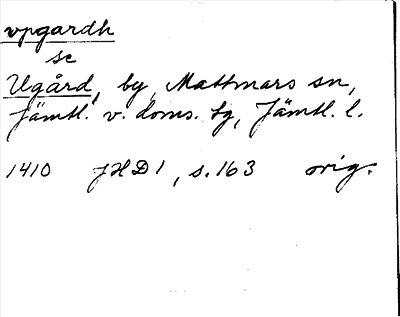 vpgardh
se
Ugård, by, Mattmars sn,
Jämtl. v. doms. tg, Jämtl. l.
1410 JHD 1, s. 163 orig.